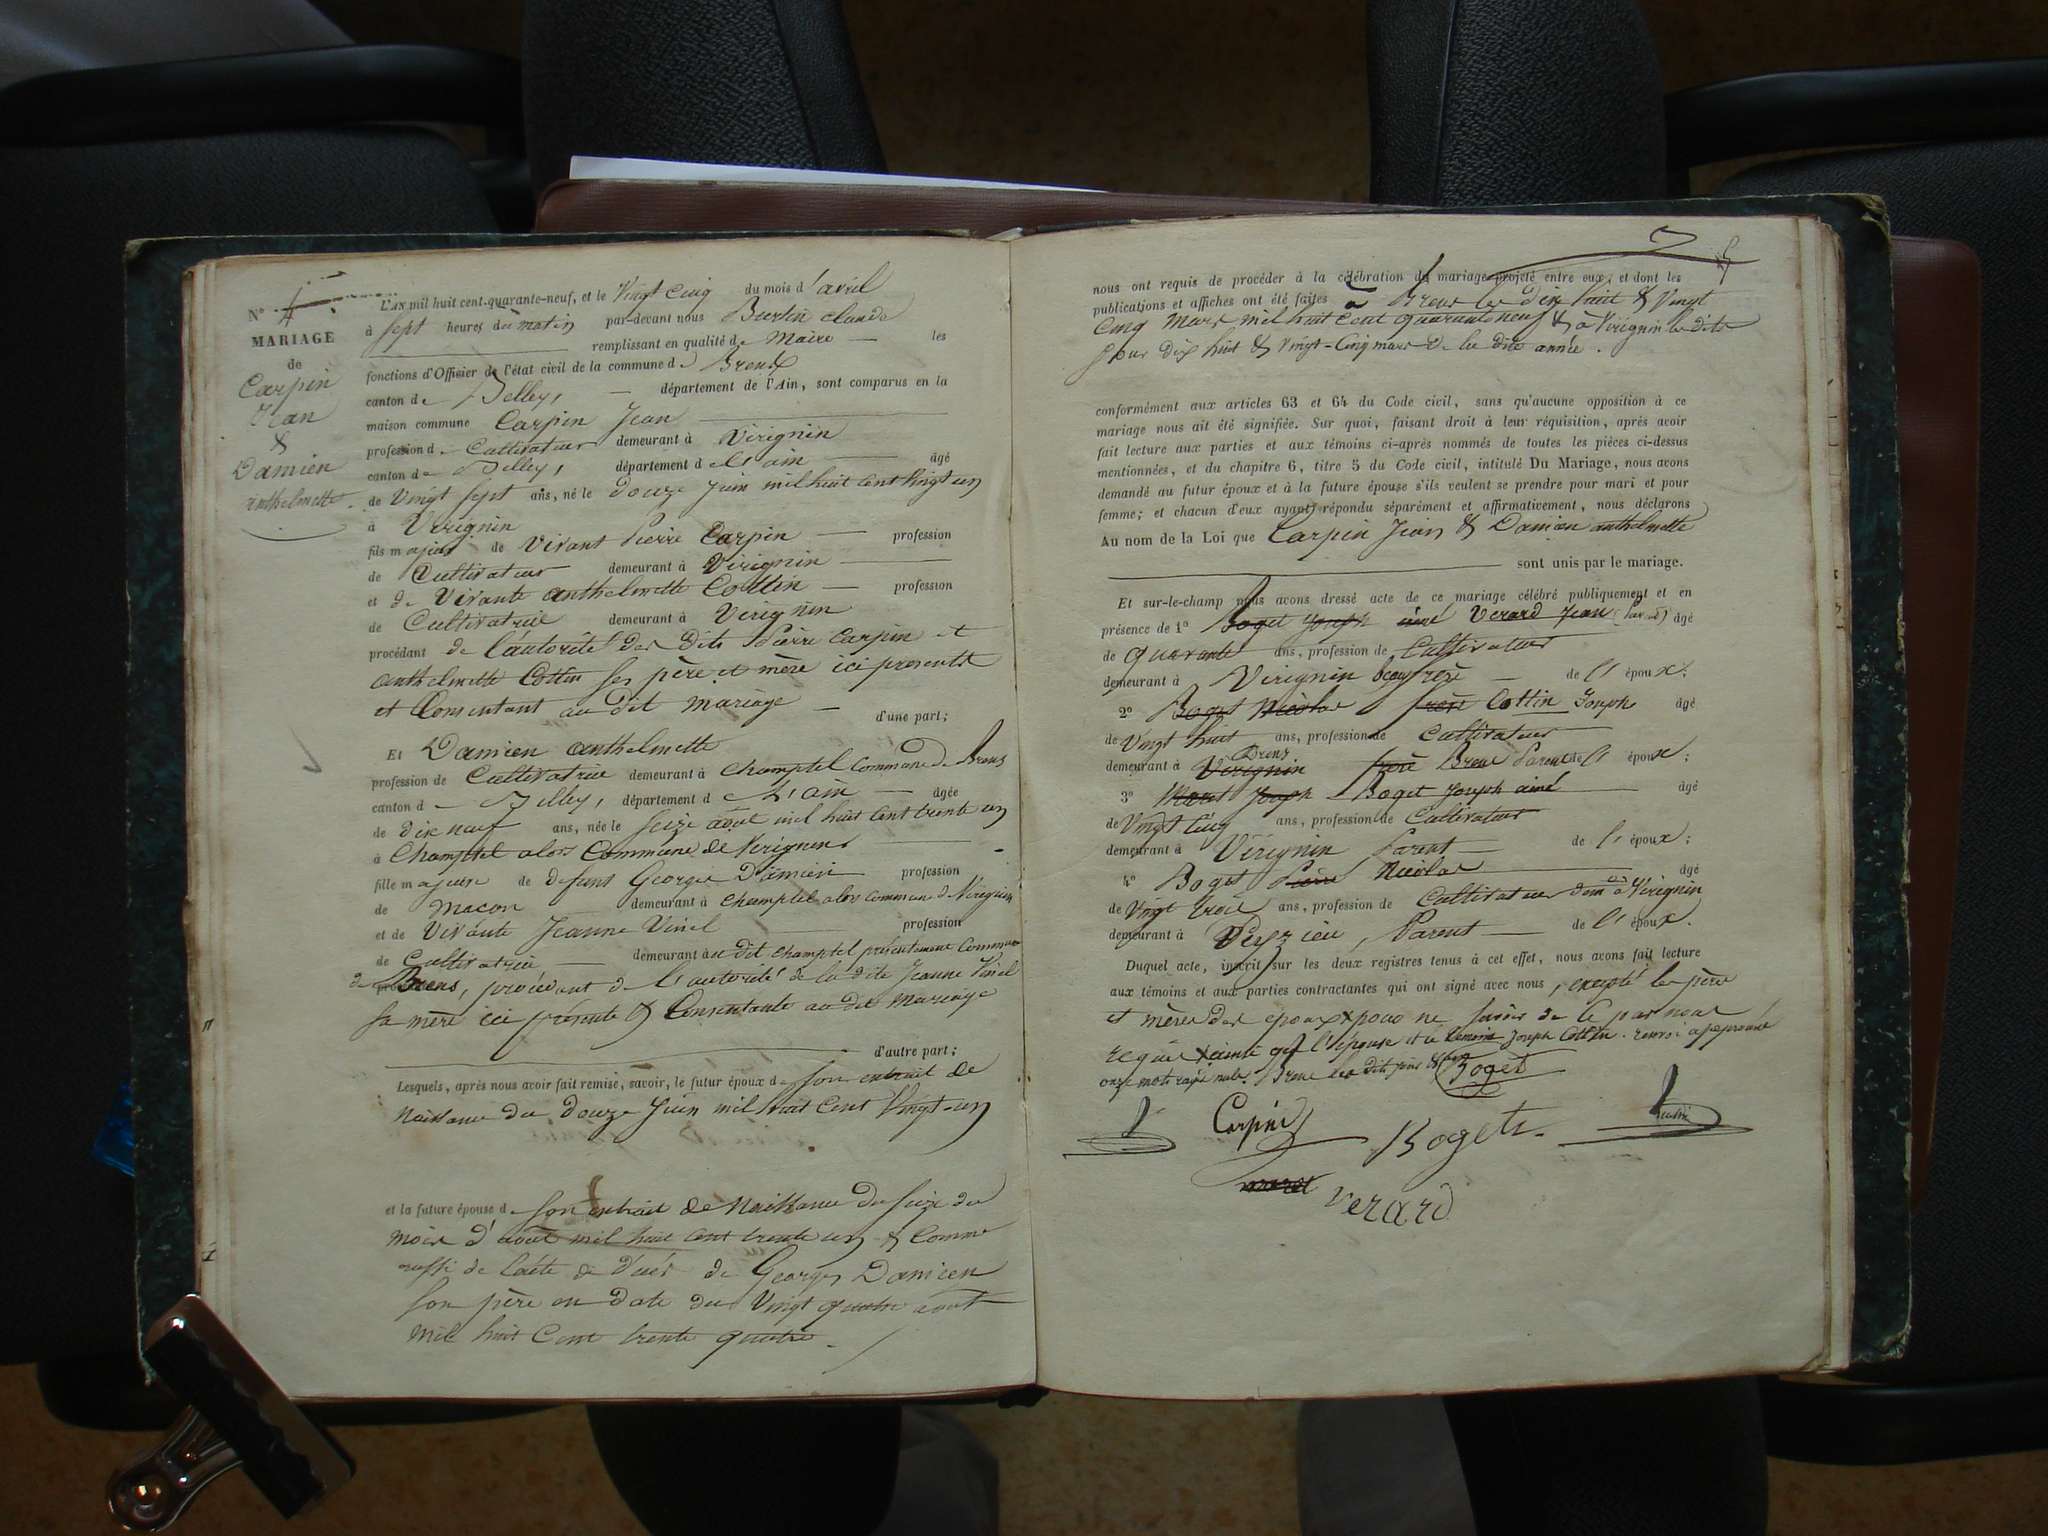 N° 4
MARIAGE
de
Carpin
Jean
&
Damien
anthelmette
L'AN mil huit cent-quarante-neuf, et le Vingt cinq du mois d'avril
à sept heures du matin par-devant nous Burtin claude
remplissant en qualité de Maire les
fonctions d'Officier de l'état civil de la commune de Brens
canton de Belley, département de l'Ain, sont comparus en la
maison commune Carpin Jean
profession de Cultivateur demeurant à Virignin
canton de Belley, département de l'ain âgé
de Vingt sept ans, né le douze juin mil huit cent vingt un
à Virignin
fils majeur de Vivant Pierre Carpin profession
de Cultivateur demeurant à Virignin
et de Vivante anthelmette Cottin profession
de Cultivatrice demeurant à Virignin
procédant de l'autorité des dits Pierre Carpin et
anthelmette Cottin ses père et mère ici presents
et Consentant au dit mariage d'une part;
Et Damien anthelmette
profession de Cultivatrice demeurant à Champtel commune de Brens
canton de Belley, département de L'ain âgée
de dix neuf ans, née le seize août mil huit cent trente un
à Champtel alors Commune de Virignin
fille majeure de defunt Georges Damien profession
de Macon demeurant à Champtel alors commune de Virignin
et de Vivante Jeanne Vinel profession
de Cultivatrice demeurant au dit Champtel présentement Commune
de Brens, procédant de l'autorité de la dite Jeanne Vinel
sa mère ici présente & Consentante au dit Mariage
d'autre part;
Lesquels, après nous avoir fait remise, savoir, le futur époux de son extrait de
Naissance du douze juin mil huit cent Vingt-un
et la future épouse de son extrait de Naissance du seize du
mois d'août mil huit cent trente un & comme
aussi de l'acte de décès de Georges Damien
son père en date du Vingt quatre août
mil huit cent trente quatre.
nous ont requis de procéder à la célébration du mariage projeté entre eux, et dont les
publications et affiches ont été faites à Brens les dix huit & Vingt
Cinq Mars mil huit cent quarante neuf & à Virignin les dits
jour dix huit & Vingt-Cinq mars de la dite année.
conformément aux articles 63 et 64 du Code civil, sans qu'aucune opposition à ce
mariage nous ait été signifiée. Sur quoi, faisant droit à leur réquisition, après avoir
fait lecture aux parties et aux témoins ci-après nommés de toutes les pièces ci-dessus
mentionnées, et du chapitre 6, titre 5 du Code civil, intitulé Du Mariage, nous avons
demandé au futur époux et à la future épouse s'ils veulent se prendre pour mari et pour
femme; et chacun d'eux ayant répondu séparément et affirmativement, nous déclarons
Au nom de la Loi que Carpin Jean & Damien anthelmette
sont unis par le mariage.
Et sur-le-champ nous avons dressé acte de ce mariage célébré publiquement et en
présence de 1° Boget Joseph ainé Verard Jean âgé
de quarante ans, profession de Cultivateur
demeurant à Virignin beau frère de l'époux.
2° Boget Nicolas frère Cottin Joseph âgé
de Vingt huit ans, profession de Cultivateur
Brens
demeurant à Virignin frère Brens Parent de l'époux;
3° Maret Joseph Boget Joseph ainé âgé
de Vingt Cinq ans, profession de Cultivateur
demeurant à Virignin Parent de l'époux;
4° Boget Pierre Nicolas âgé
de Vingt trois ans, profession de Cultivateur dem à Virignin
demeurant à Peyzieu, Parent de l'époux.
Duquel acte, inscrit sur les deux registres tenus à cet effet, nous avons fait lecture
aux témoins et aux parties contractantes qui ont signé avec nous, excepté le père
et mères des epoux pour ne savoir de ce par nous
requis l'épouse et le témoin Joseph Cottin. renvoi approuvé
onze mots rayés nuls. Brens les dits jour & an
Boget
Carpin
Boget
maret
Verard